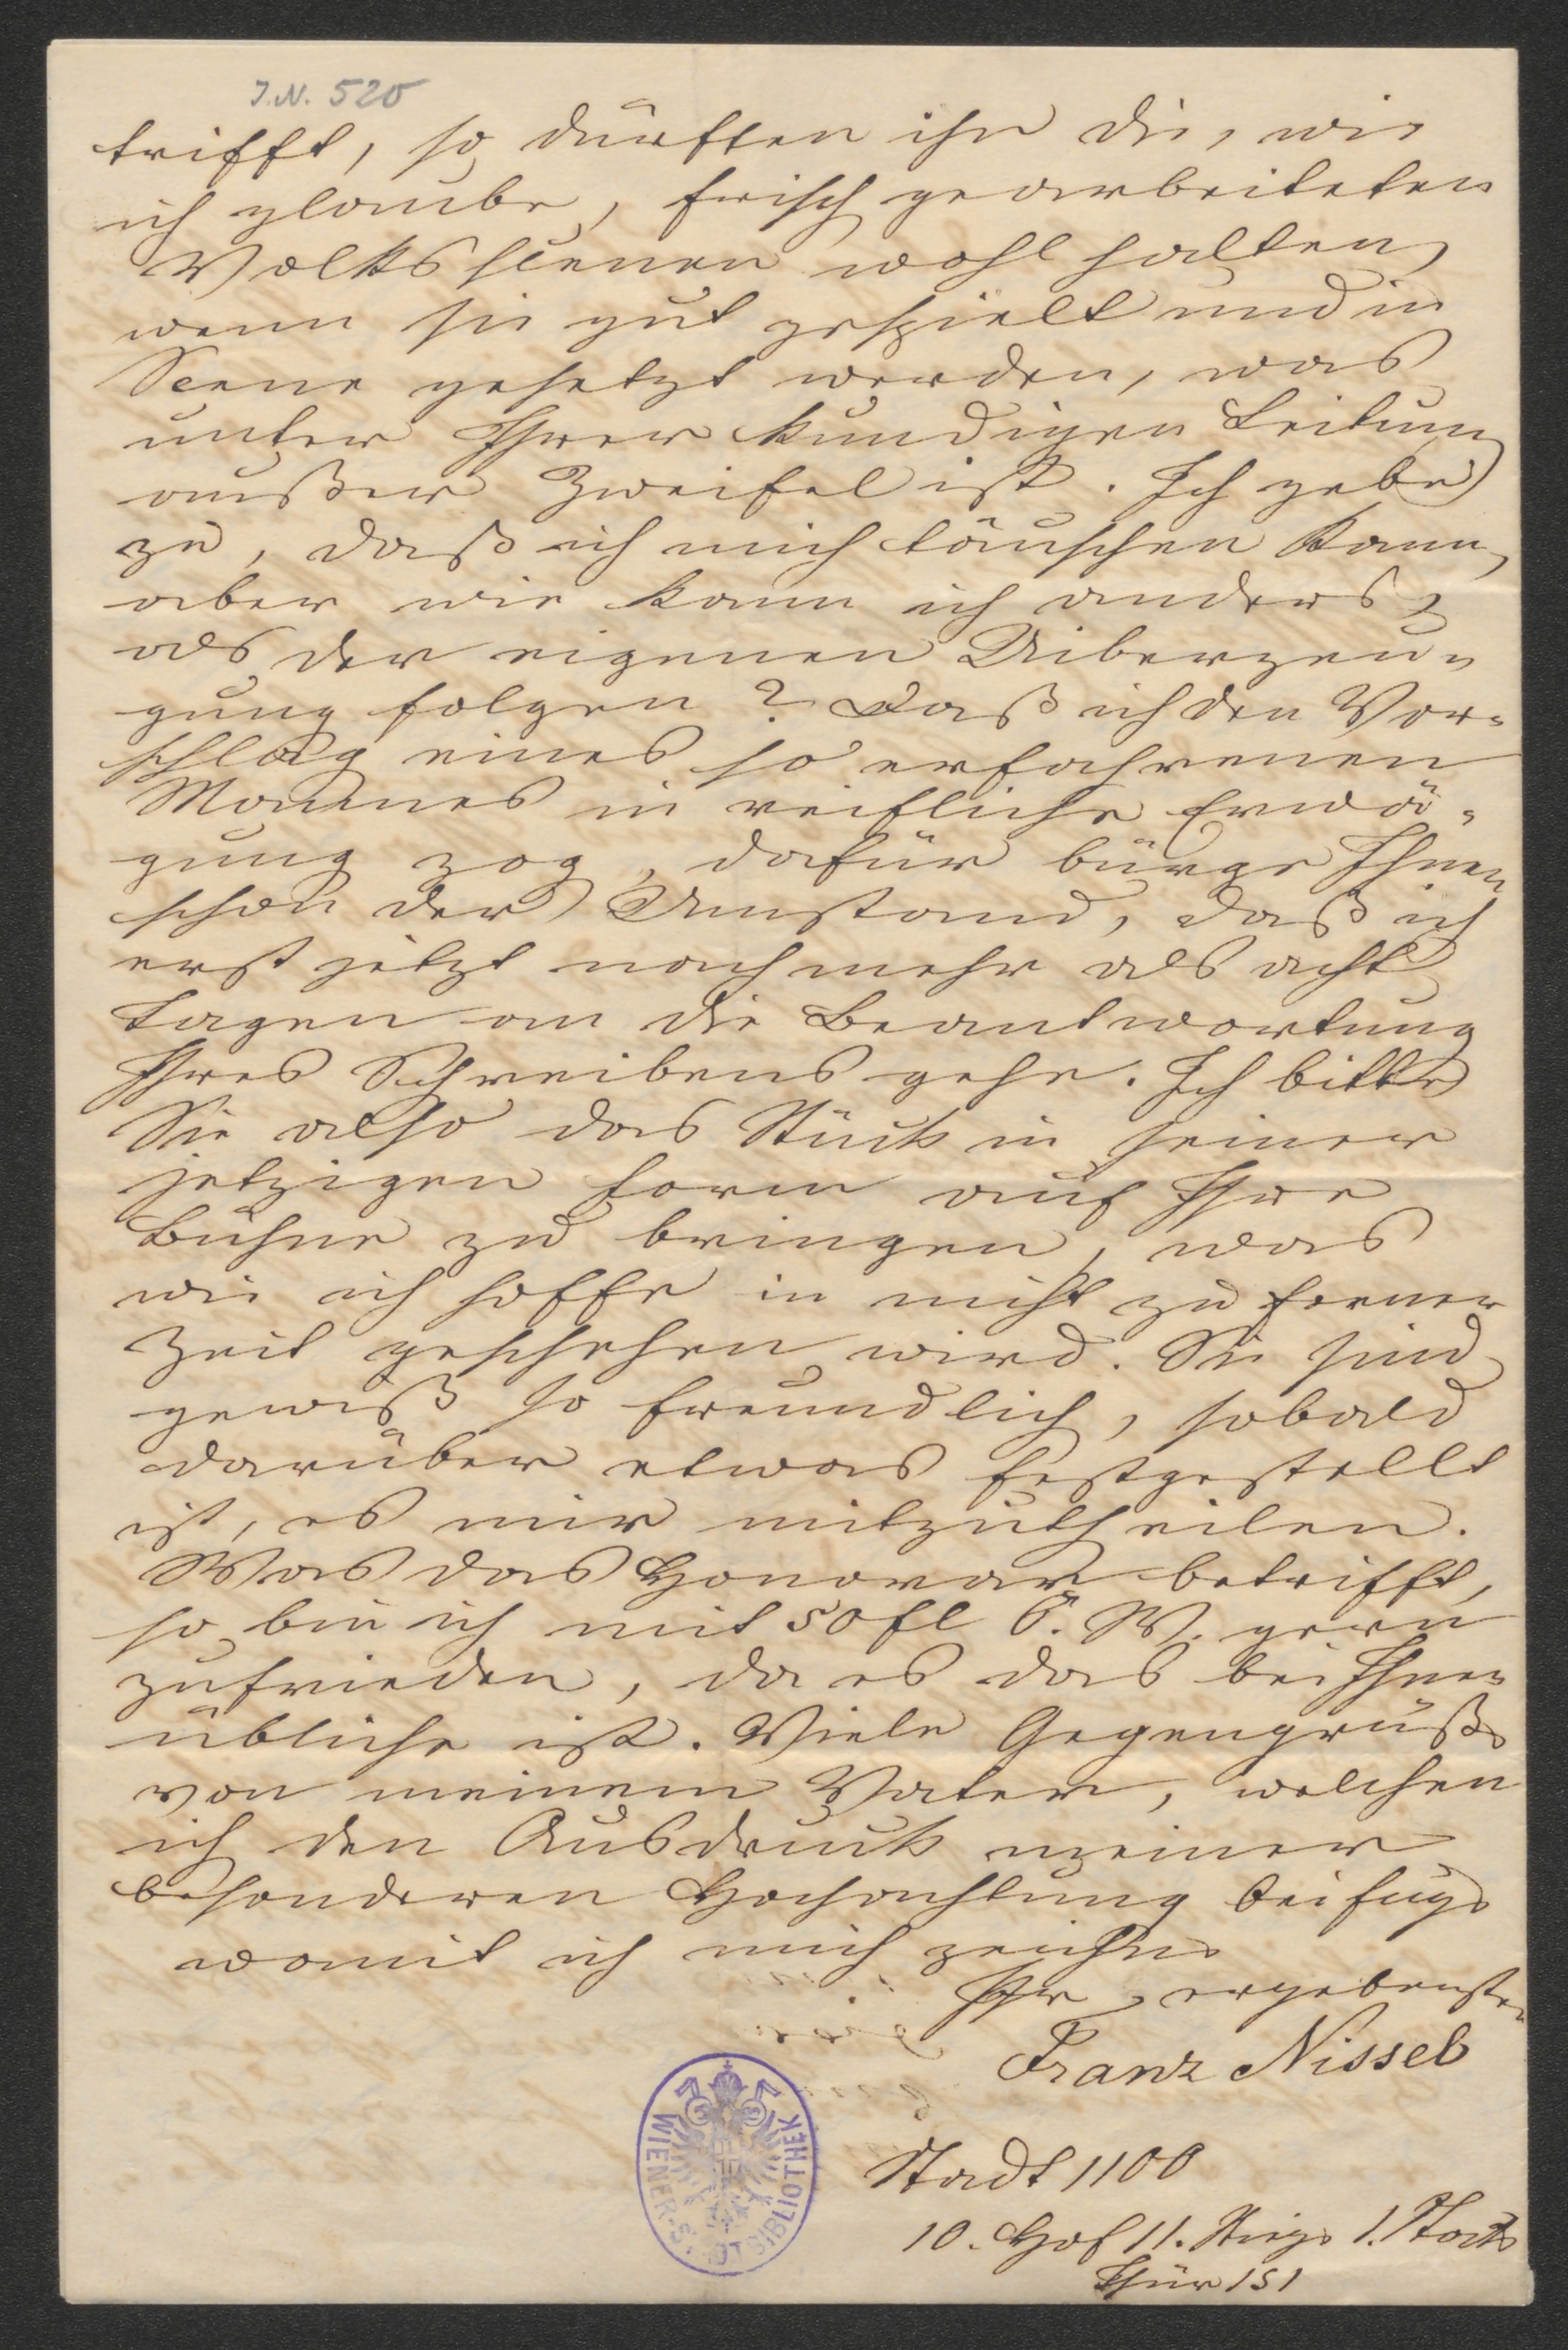 I. N. 520
trifft, so dürften ihn die, wie
ich glaube, frisch gearbeiteten
Volksscenen wohl halten,
wenn sie gut gespielt und in
Scene gesetzt werden, was
unter Ihrer kundigen Leitung
außer Zweifel ist. Ich gebe
zu, daß ich mich täuschen kann,
aber wie kann ich anders,
als der eigenen Uiberzeu-
gung folgen? Daß ich den Vor-
schlag eines so erfahrenen
Mannes in reifliche Erwä-
gung zog, dafür bürge Ihnen
schon der Umstand, daß ich
erst jetzt nach mehr als acht
Tagen an die Beantwortung
Ihres Schreibens gehe. Ich bitte
Sie also das Stück in seiner
jetzigen Form auf Ihre
Bühne zu bringen, was
wie ich hoffe in nicht zu ferner
Zeit geschehen wird. Sie sind
gewiß so freundlich, sobald
darüber etwas festgestellt
ist, es mir mitzutheilen.
Was das Honorar betrifft,
so bin ich mit 50 fl Ö. W. gern
zufrieden, da es das bei Ihnen
übliche ist. Viele Gegengrüße
von meinem Vater, welchen
ich den Ausdruck meiner
besonderen Hochachtung beifüge
womit ich mich zeichne
Ihr ergebenster
Franz Nissel
Stadt 1100
10. Hof 11. Stiege 1. Stock
Thür 151
WIENER-STADTBIBLIOTHEK